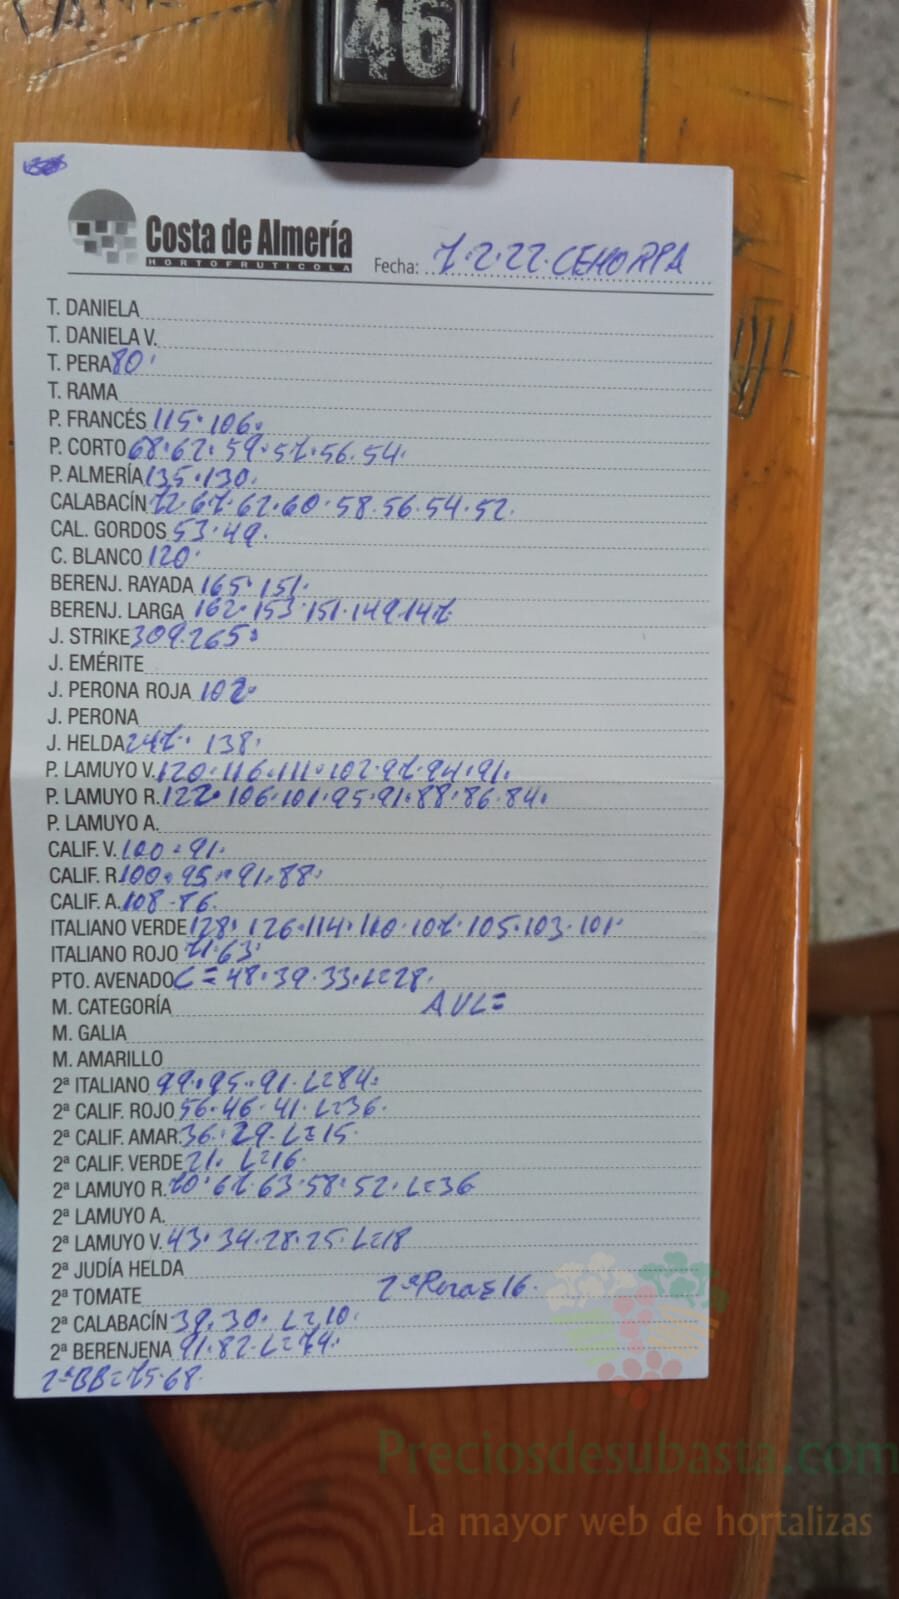 46
Costa de Almería
HORTOFRUTICOLA
Fecha: 7.2.22.CEHORPA
T. DANIELA
T. DANIELA V.
T. PERA 80.
T. RAMA
P. FRANCÉS 115.106.
P. CORTO 68.62.59.57.56.54.
P. ALMERÍA 135.130.
CALABACÍN 72.67.62.60.58.56.54.52.
CAL. GORDOS 53.49.
C. BLANCO 120.
BERENJ. RAYADA 165.151.
BERENJ. LARGA 162.153.151.149.147.
J. STRIKE 309.265.
J. EMÉRITE
J. PERONA ROJA 102.
J. PERONA
J. HELDA 247. 138.
P. LAMUYO V. 120.116.111.102.97.94.91.
P. LAMUYO R. 122.106.101.95.91.88.86.84.
P. LAMUYO A.
CALIF. V. 100.91.
CALIF. R. 100.95.91.88.
CALIF. A. 108-86.
ITALIANO VERDE 128.126.114.110.107.105.103.101.
ITALIANO ROJO 71.63.
PTO. AVENADO C=48.39.33.L=28.
M. CATEGORÍA AVL=
M. GALIA
M. AMARILLO
2ª ITALIANO 99.95.91.L=84.
2ª CALIF. ROJO 56.46.41.L=36.
2ª CALIF. AMAR. 36.29.L=15.
2ª CALIF. VERDE 21. L=16.
2ª LAMUYO R. 70.67.63.58.52.L=36
2ª LAMUYO A.
2ª LAMUYO V. 43.34.28.25.L=18
2ª JUDÍA HELDA
2ª TOMATE 2ªPera=16.
2ª CALABACÍN 39.30. L=10.
2ª BERENJENA 91.82.L=74.
2ªBB=75.68.
Preciosdesubasta.com
La mayor web de hortalizas